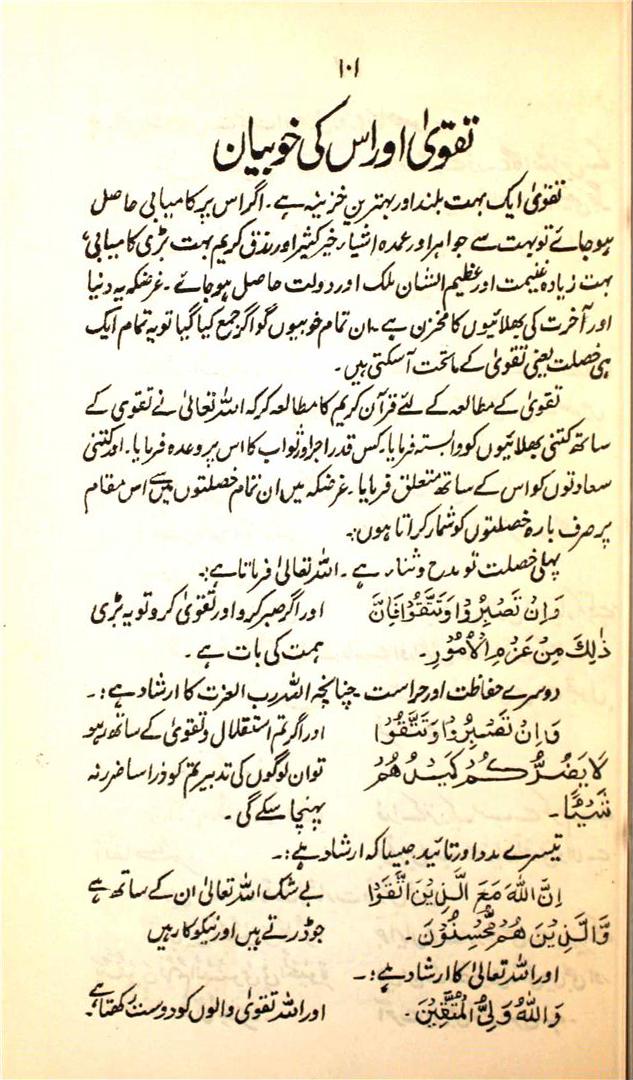 ۱۰۱
تقویٰ اور اس کی خوبیان
تقویٰ ایک بہت بلند اور بہترین خزینہ ہے۔ اگر اس پر کامیابی حاصل
ہو جائے تو بہت سے جواہر اور عمدہ اشیاء، خیر کثیر اور رزق کریم بہت بڑی کامیابی،
بہت زیادہ غنیمت اور عظیم الشان ملک اور دولت حاصل ہو جائے۔ غرضکہ یہ دنیا
اور آخرت کی بھلائیوں کا مخزن ہے۔ ان تمام خوبیوں کو اگر جمع کیا گیا تو یہ تمام ایک
ہی خصلت یعنی تقویٰ کے ماتحت آسکتی ہیں۔
تقویٰ کے مطالعہ کے لئے قرآن کریم کا مطالعہ کر کہ اللہ تعالیٰ نے تقویٰ کے
ساتھ کتنی بھلائیوں کو وابستہ فرمایا، کس قدر اجر اور ثواب کا اس پر وعدہ فرمایا۔ اور کتنی
سعادتوں کو اس کے ساتھ متعلق فرمایا۔ غرضکہ میں ان تمام خصلتوں میں سے اس مقام
پر صرف بارہ خصلتوں کو شمار کراتا ہوں:۔
پہلی خصلت تو مدح و ثناء ہے۔ اللہ تعالیٰ فرماتا ہے:۔
وَاِنْ تَصْبِرُوْا وَتَتَّقُوْا فَاِنَّ اور اگر صبر کرو اور تقویٰ کرو تو یہ بڑی
ذٰلِكَ مِنْ عَزْمِ الْاُمُوْرِ۔ ہمت کی بات ہے۔
دوسرے حفاظت اور حراست چنانچہ اللہ رب العزت کا ارشاد ہے:۔
وَاِنْ تَصْبِرُوْا وَتَتَّقُوْا اور اگر تم استقلال و تقویٰ کے ساتھ رہو
لَا يَضُرُّكُمْ كَيْدُهُمْ تو ان لوگوں کی تدبیر تم کو ذرا سا ضرر نہ
شَيْئًا۔ پہنچا سکے گی۔
تیسرے مدد اور تائید جیسا کہ ارشاد ہے:۔
اِنَّ اللّٰهَ مَعَ الَّذِيْنَ اتَّقَوْا بے شک اللہ تعالیٰ ان کے ساتھ ہے
وَّالَّذِيْنَ هُمْ مُّحْسِنُوْنَ۔ جو ڈرتے ہیں اور نیکوکار ہیں
اور اللہ تعالیٰ کا ارشاد ہے:۔
وَاللّٰهُ وَلِيُّ الْمُتَّقِيْنَ۔ اور اللہ تقویٰ والوں کو دوست رکھتا ہے۔